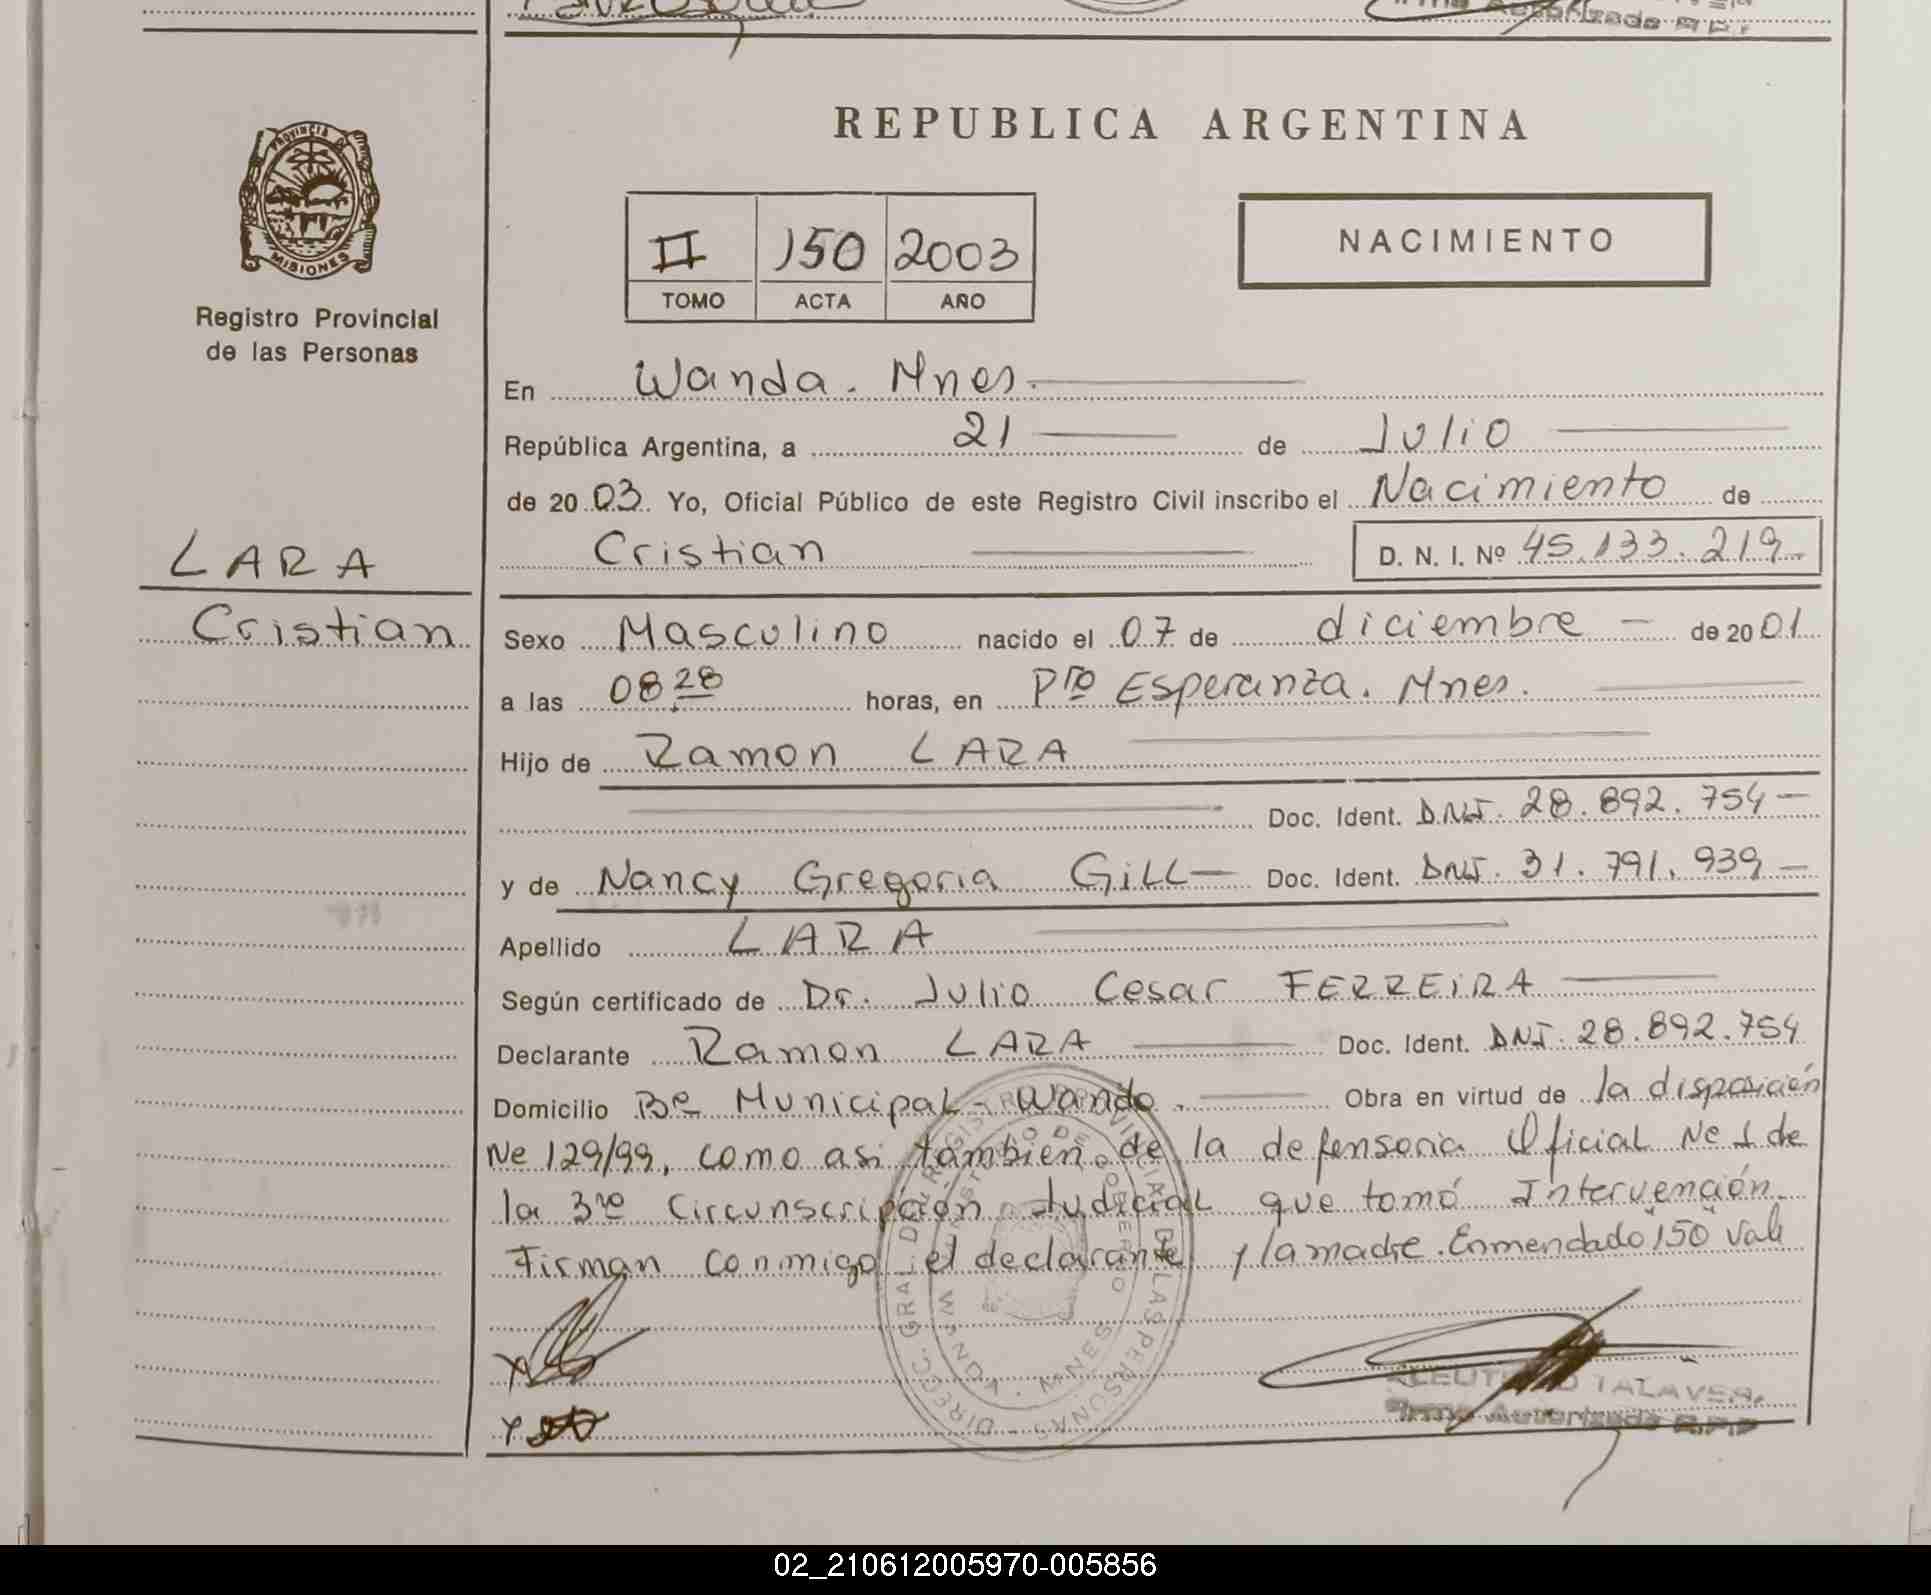 REPUBLICA ARGENTINA
PROVINCIA DE
MISIONES
Registro Provincial
de las Personas
II 150 2003
TOMO ACTA AÑO
NACIMIENTO
En Wanda. Mnes.
República Argentina, a 21 de Julio
de 20 03 Yo, Oficial Público de este Registro Civil inscribo el Nacimiento de
Cristian D. N. I. Nº 45.133.219
LARA
Cristian
Sexo Masculino nacido el 07 de diciembre de 20 01
a las 08.28 horas, en Pto Esperanza. Mnes.
Hijo de Ramon LARA
Doc. Ident. DNI. 28.892.754
y de Nancy Gregoria GiLL Doc. Ident. DNI. 31.791.939
Apellido LARA
Según certificado de Dr. Julio Cesar FERREiRA
Declarante Ramon LARA Doc. Ident. DNI. 28.892.754
Domicilio Be Municipal - Wanda. Obra en virtud de la disposición
Ne 129/99, como asi tambien de la defensoria Oficial Ne 1 de
la 3ra Circunscripción Judicial que tomó Intervención.
Firman conmigo el declarante y la madre. Enmendado "150" Vale
DIRECC. GRAL. DEL REGISTRO PROVINCIAL DE LAS PERSONAS
MINISTERIO DE GOBIERNO
MISIONES
TALAVERA
Firma Autorizada R.P.P
02_210612005970-005856